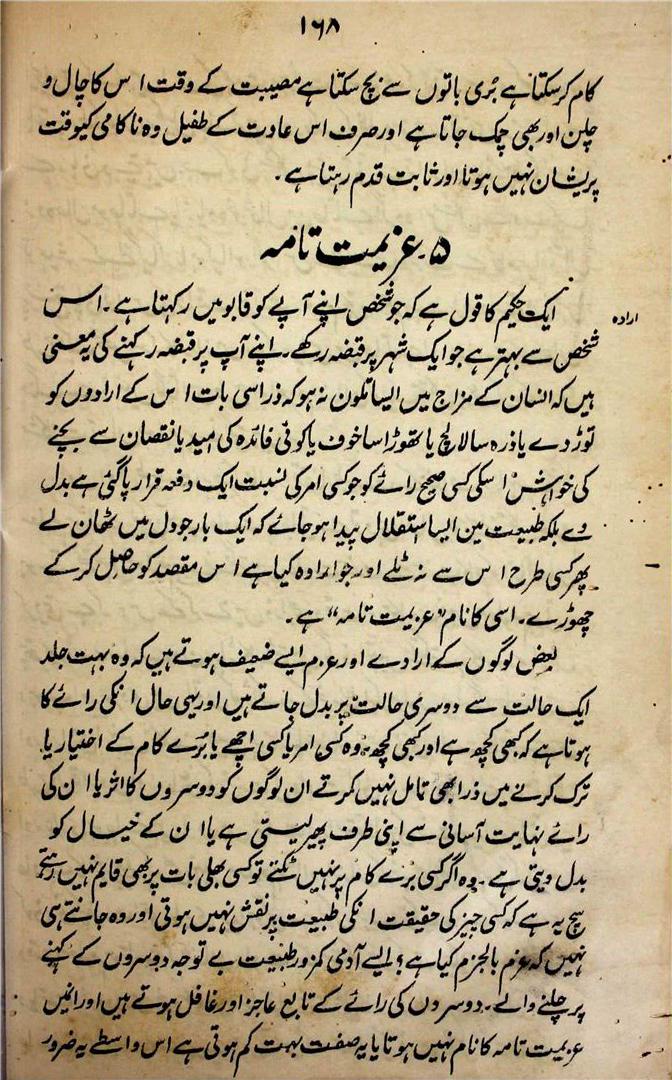 ۱۶۸
کام کرسکتا ہے بُری باتوں سے بچ سکتا ہے مصیبت کے وقت اس کا چال و
چلن اور بھی چمک جاتا ہے اور صرف اس عادت کے طفیل وہ ناکامی کیوقت
پریشان نہیں ہوتا اور ثابت قدم رہتا ہے۔
۵۔ عزیمت تامہ
ارادہ
ایک حکیم کا قول ہے کہ جو شخص اپنے آپے کو قابو میں رکہتا ہے۔ اس
شخص سے بہتر ہے جو ایک شہر پر قبضہ رکھے۔ اپنے آپ پر قبضہ رکہنے کی یہ معنی
ہیں کہ انسان کے مزاج میں ایسا تلون نہ ہو کہ ذراسی بات اس کے ارادوں کو
توڑ دے یا ذرہ سا لالچ یا تھوڑا سا خوف یا کوئی فائدہ کی امید یا نقصان سے بچنے
کی خواہش اسکی کسی صحیح رائے کو جو کسی امر کی نسبت ایک دفعہ قرار پاگئی ہے بدل
دے بلکہ طبیعت مین ایسا استقلال پیدا ہو جائے کہ ایک بار جو دل میں ٹھان لے
پھر کسی طرح اس سے نہ ٹلے اور جو ارادہ کیا ہے اس مقصد کو حاصل کرکے
چھوڑے۔ اسی کا نام "عزیمت تامہ" ہے۔
بعض لوگوں کے ارادے اور عزم ایسے ضعیف ہوتے ہیں کہ وہ بہت جلد
ایک حالت سے دوسری حالت پر بدل جاتے ہیں اور یہی حال انکی رائے کا
ہوتا ہے کہ کبھی کچھ ہے اور کبھی کچھ۔ وہ کسی امر یا کسی اچھے یا بُرے کام کے اختیار یا
ترک کرنے میں ذرا بھی تامل نہیں کرتے ان لوگوں کو دوسروں کا اثر یا ان کی
رائے نہایت آسانی سے اپنی طرف پھیر لیتی ہے یا ان کے خیال کو
بدل دیتی ہے۔ وہ اگر کسی بُرے کام پر نہیں ٹکتے تو کسی بھلی بات پر بھی قایم نہیں رہتے
سچ یہ ہے کہ کسی چیز کی حقیقت انکی طبیعت پر نقش نہیں ہوتی اور وہ جانتے ہی
نہیں کہ عزم بالجزم کیا ہے؟ ایسے آدمی کمزور طبیعت بے توجہ دوسروں کے کہنے
پر چلنے والے۔ دوسروں کی رائے کے تابع عاجز اور غافل ہوتے ہیں اور انمیں
عزیمت تامہ کا نام نہیں ہوتا یا یہ صفت بہت کم ہوتی ہے اس واسطے یہ ضرور